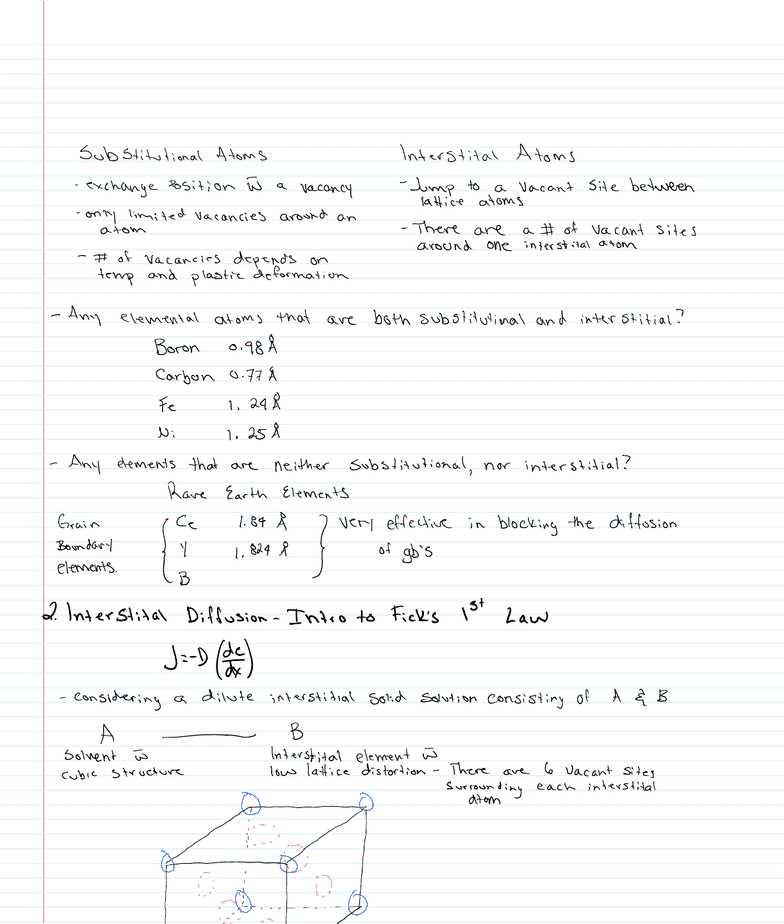 Substitutional Atoms
- exchange position w̄ a vacancy
- only limited vacancies around an
atom
- # of vacancies depends on
temp and plastic deformation
Interstital Atoms
- Jump to a vacant site between
lattice atoms
- There are a # of vacant sites
around one interstital atom
- Any elemental atoms that are both substitutinal and interstitial?
Boron 0.98 Å
Carbon 0.77 Å
Fe 1.24 Å
Ni 1.25 Å
- Any elements that are neither substitutional, nor interstitial?
Rare Earth Elements
Grain
Boundary
elements.
Ce 1.84 Å
Y 1.824 Å
B
very effective in blocking the diffusion
of gb's
2. Interstital Diffusion - Intro to Fick's 1st Law
J=-D (dc/dx)
- considering a dilute interstitial solid solution consisting of A & B
A
Solvent w̄
cubic structure
B
Interstital element w̄
low lattice distortion - There are 6 vacant sites
surrounding each interstital
atom